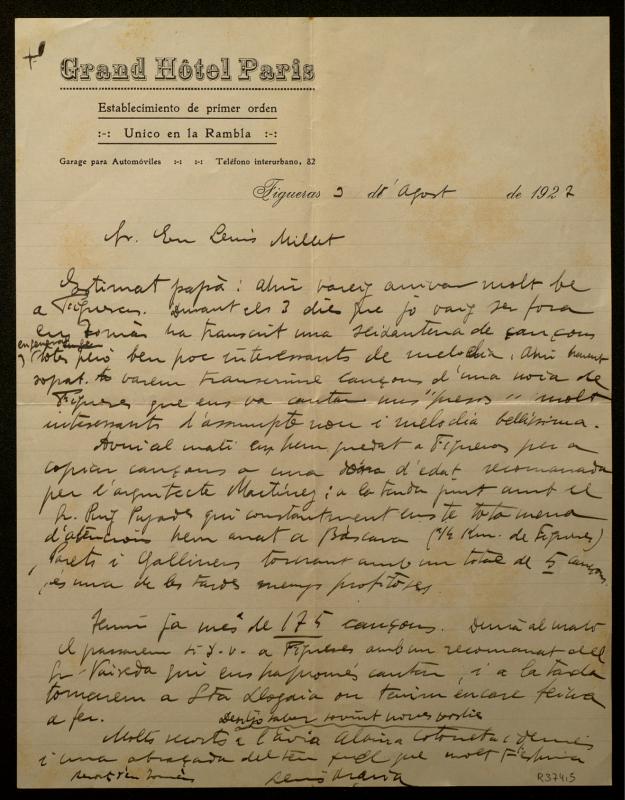 Grand Hôtel Paris
Establecimiento de primer orden
:-: Unico en la Rambla :-:
Garage para Automóviles :-: :-: Teléfono interurbano, 82
Figueras 3 d'Agost de 1927
Sr. En Lluis Millet
Estimat papà: Ahir vareig arrivar molt be
a Figueres. Durant els 3 dies que jo vaig ser fora
en Tomàs ha transcrit una seixantena de cançons
en general
totes però ben poc interessants de melodia. Ahir havent
sopat varem transcriure cançons d'una noia de
Figueres que ens va cantar uns "presos" molt
interessants d'assumpte nou i melodia bellíssima.
Avui al matí ens hem quedat a Figueres per a
copiar cançons a una dona d'edat recomanada
per l'arquitecte Martínez; a la tarda junt amb el
Sr. Puig Pujades qui constantment ens te tota mena
d'atencions hem anat a Bàscara ( Km. de Figueres)
Parets i Galliners tornant amb un total de 5 cançons,
és una de les tardes menys profitoses
Tenim ja més de 175 cançons. Demà al matí
el passarem si D. v. a Figueres amb un recomanat del
Sr. Vayreda qui ens ha promés cantar, i a la tarda
tornarem a Sta Llogaia on tenim encare feina
a fer.
Desitjo saber sovint noves vostres
Molts records a l'àvia Cotoneta i demés
i una abraçada del teu fill que molt t'estima
Records d'en Tomàs
Lluis Maria
R374,5